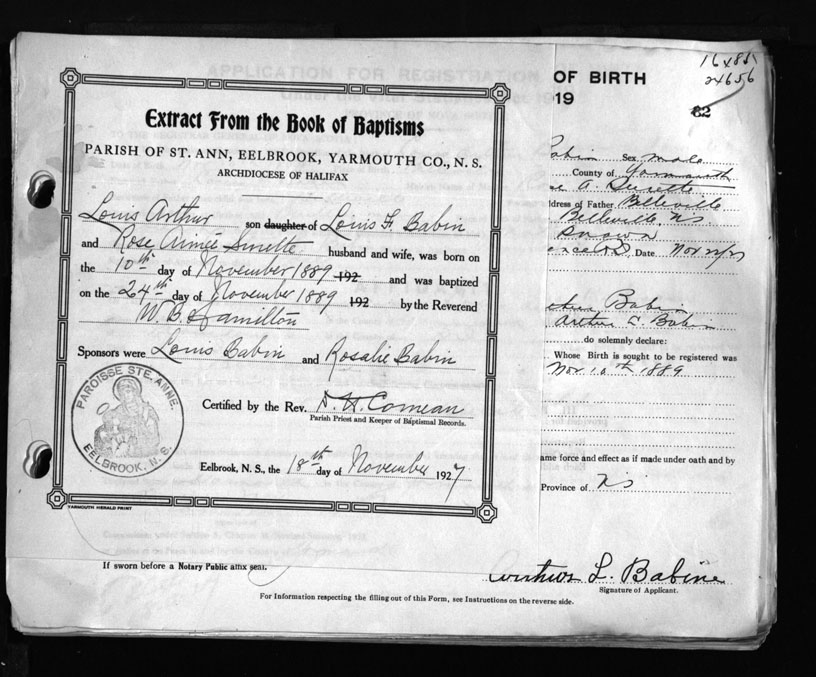 16485
24656
OF BIRTH
19
82
Extract From the Book of Baptisms
PARISH OF ST. ANN, EELBROOK, YARMOUTH CO., N. S.
ARCHDIOCESE OF HALIFAX
Louis Arthur son daughter of Louis F. Babin
and Rose Aimée Surette husband and wife, was born on
the 10th day of November 1889 192 and was baptized
on the 24th day of November 1889 192 by the Reverend
W. B. Hamilton
Sponsors were Louis Babin and Rosalie Babin
PAROISSE STE. ANNE.
EELBROOK, N. S.
Certified by the Rev. Comeau
Parish Priest and Keeper of Baptismal Records.
Eelbrook, N. S., the 18th day of November 1927
YARMOUTH HERALD PRINT
Babin Sex male
County of Yarmouth
A. Surette
ddress of Father Belleville
Belleville, N.S.
Date Nov
Babin
Arthur L. Babin
do solemnly declare:
Whose Birth is sought to be registered was
Nov. 10th 1889
ame force and effect as if made under oath and by
Province of N.S.
If sworn before a Notary Public affix seal.
Arthur L. Babine
Signature of Applicant.
For Information respecting the filling out of this Form, see Instructions on the reverse side.